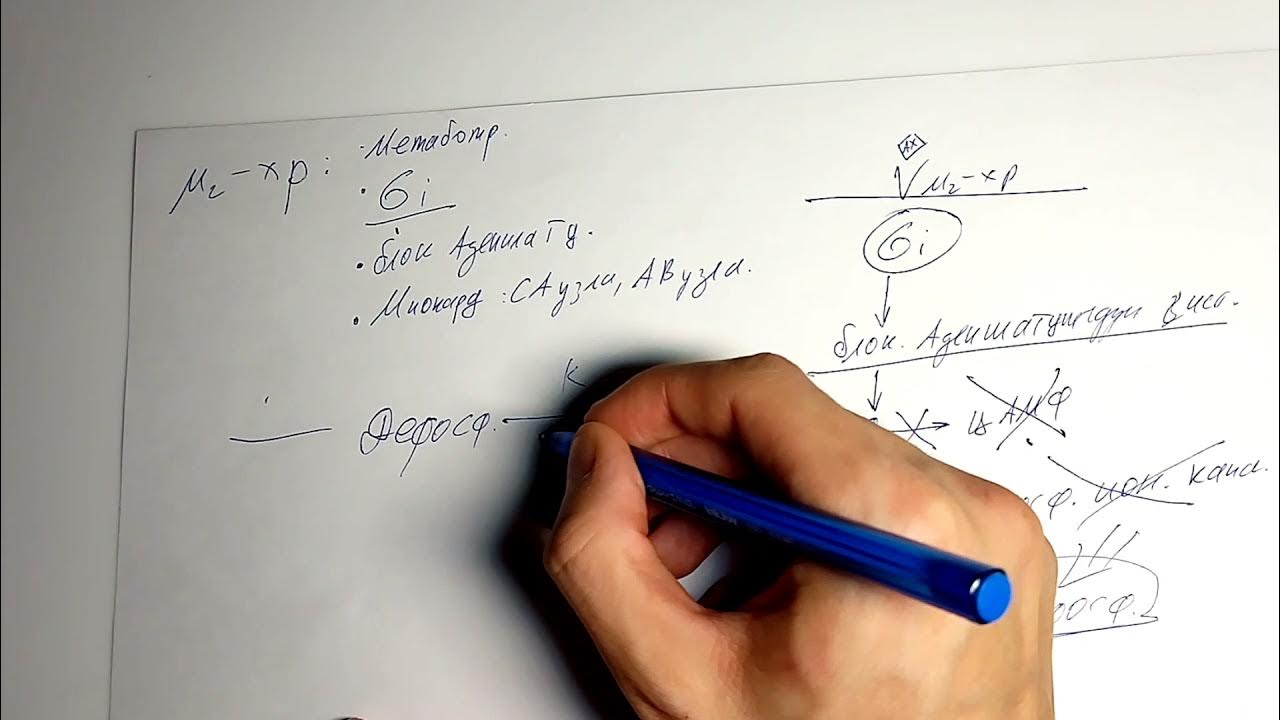 м₂-хр:
· Метаботр.
· Gi
· блок Аденилат Ц.
· Миокард: СА узла, АВ узла.
Дефосф.
К
АХ
м₂-хр
Gi
блок. Аденилатцикл
ц АМФ
сф. ион. кана.
фосф.